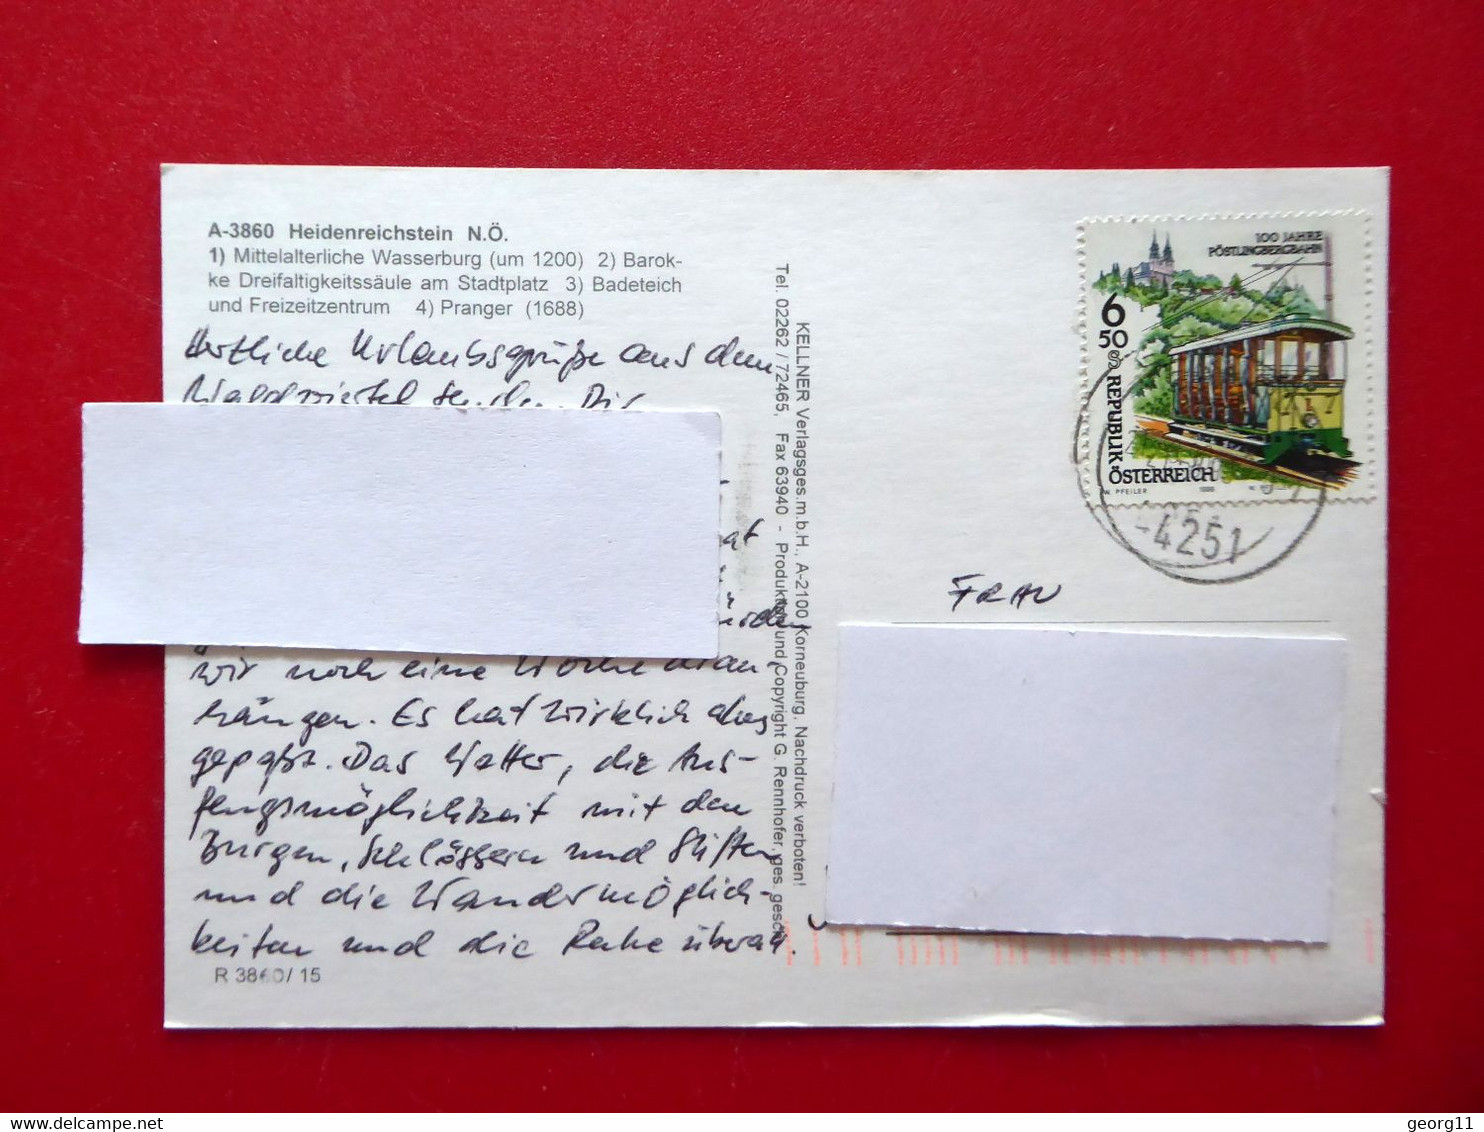 A-3860 Heidenreichstein N.Ö.
1) Mittelalterliche Wasserburg (um 1200) 2) Barok-
ke Dreifaltigkeitssäule am Stadtplatz 3) Badeteich
und Freizeitzentrum 4) Pranger (1688)
Herzliche Urlaubsgrüße aus dem
Waldviertel senden Dir
at
wir noch eine Woche dran
hängen. Es hat wirklich alles
gepaßt. Das Wetter, die Aus-
flugsmöglichkeit mit den
Burgen, Schlössern und Stiften
und die Wandermöglich-
keiten und die Ruhe überall.
R 3860/15
KELLNER Verlagsges.m.b.H., A-2100 Korneuburg, Nachdruck verboten!
Tel. 02262 / 72465, Fax 63940 - Produktion und Copyright G. Rennhofer, ges. gesch.
100 JAHRE
PÖSTLINGBERGBAHN
6
50
S
REPUBLIK
ÖSTERREICH
W. PFEILER
4251
FRAU
georg11